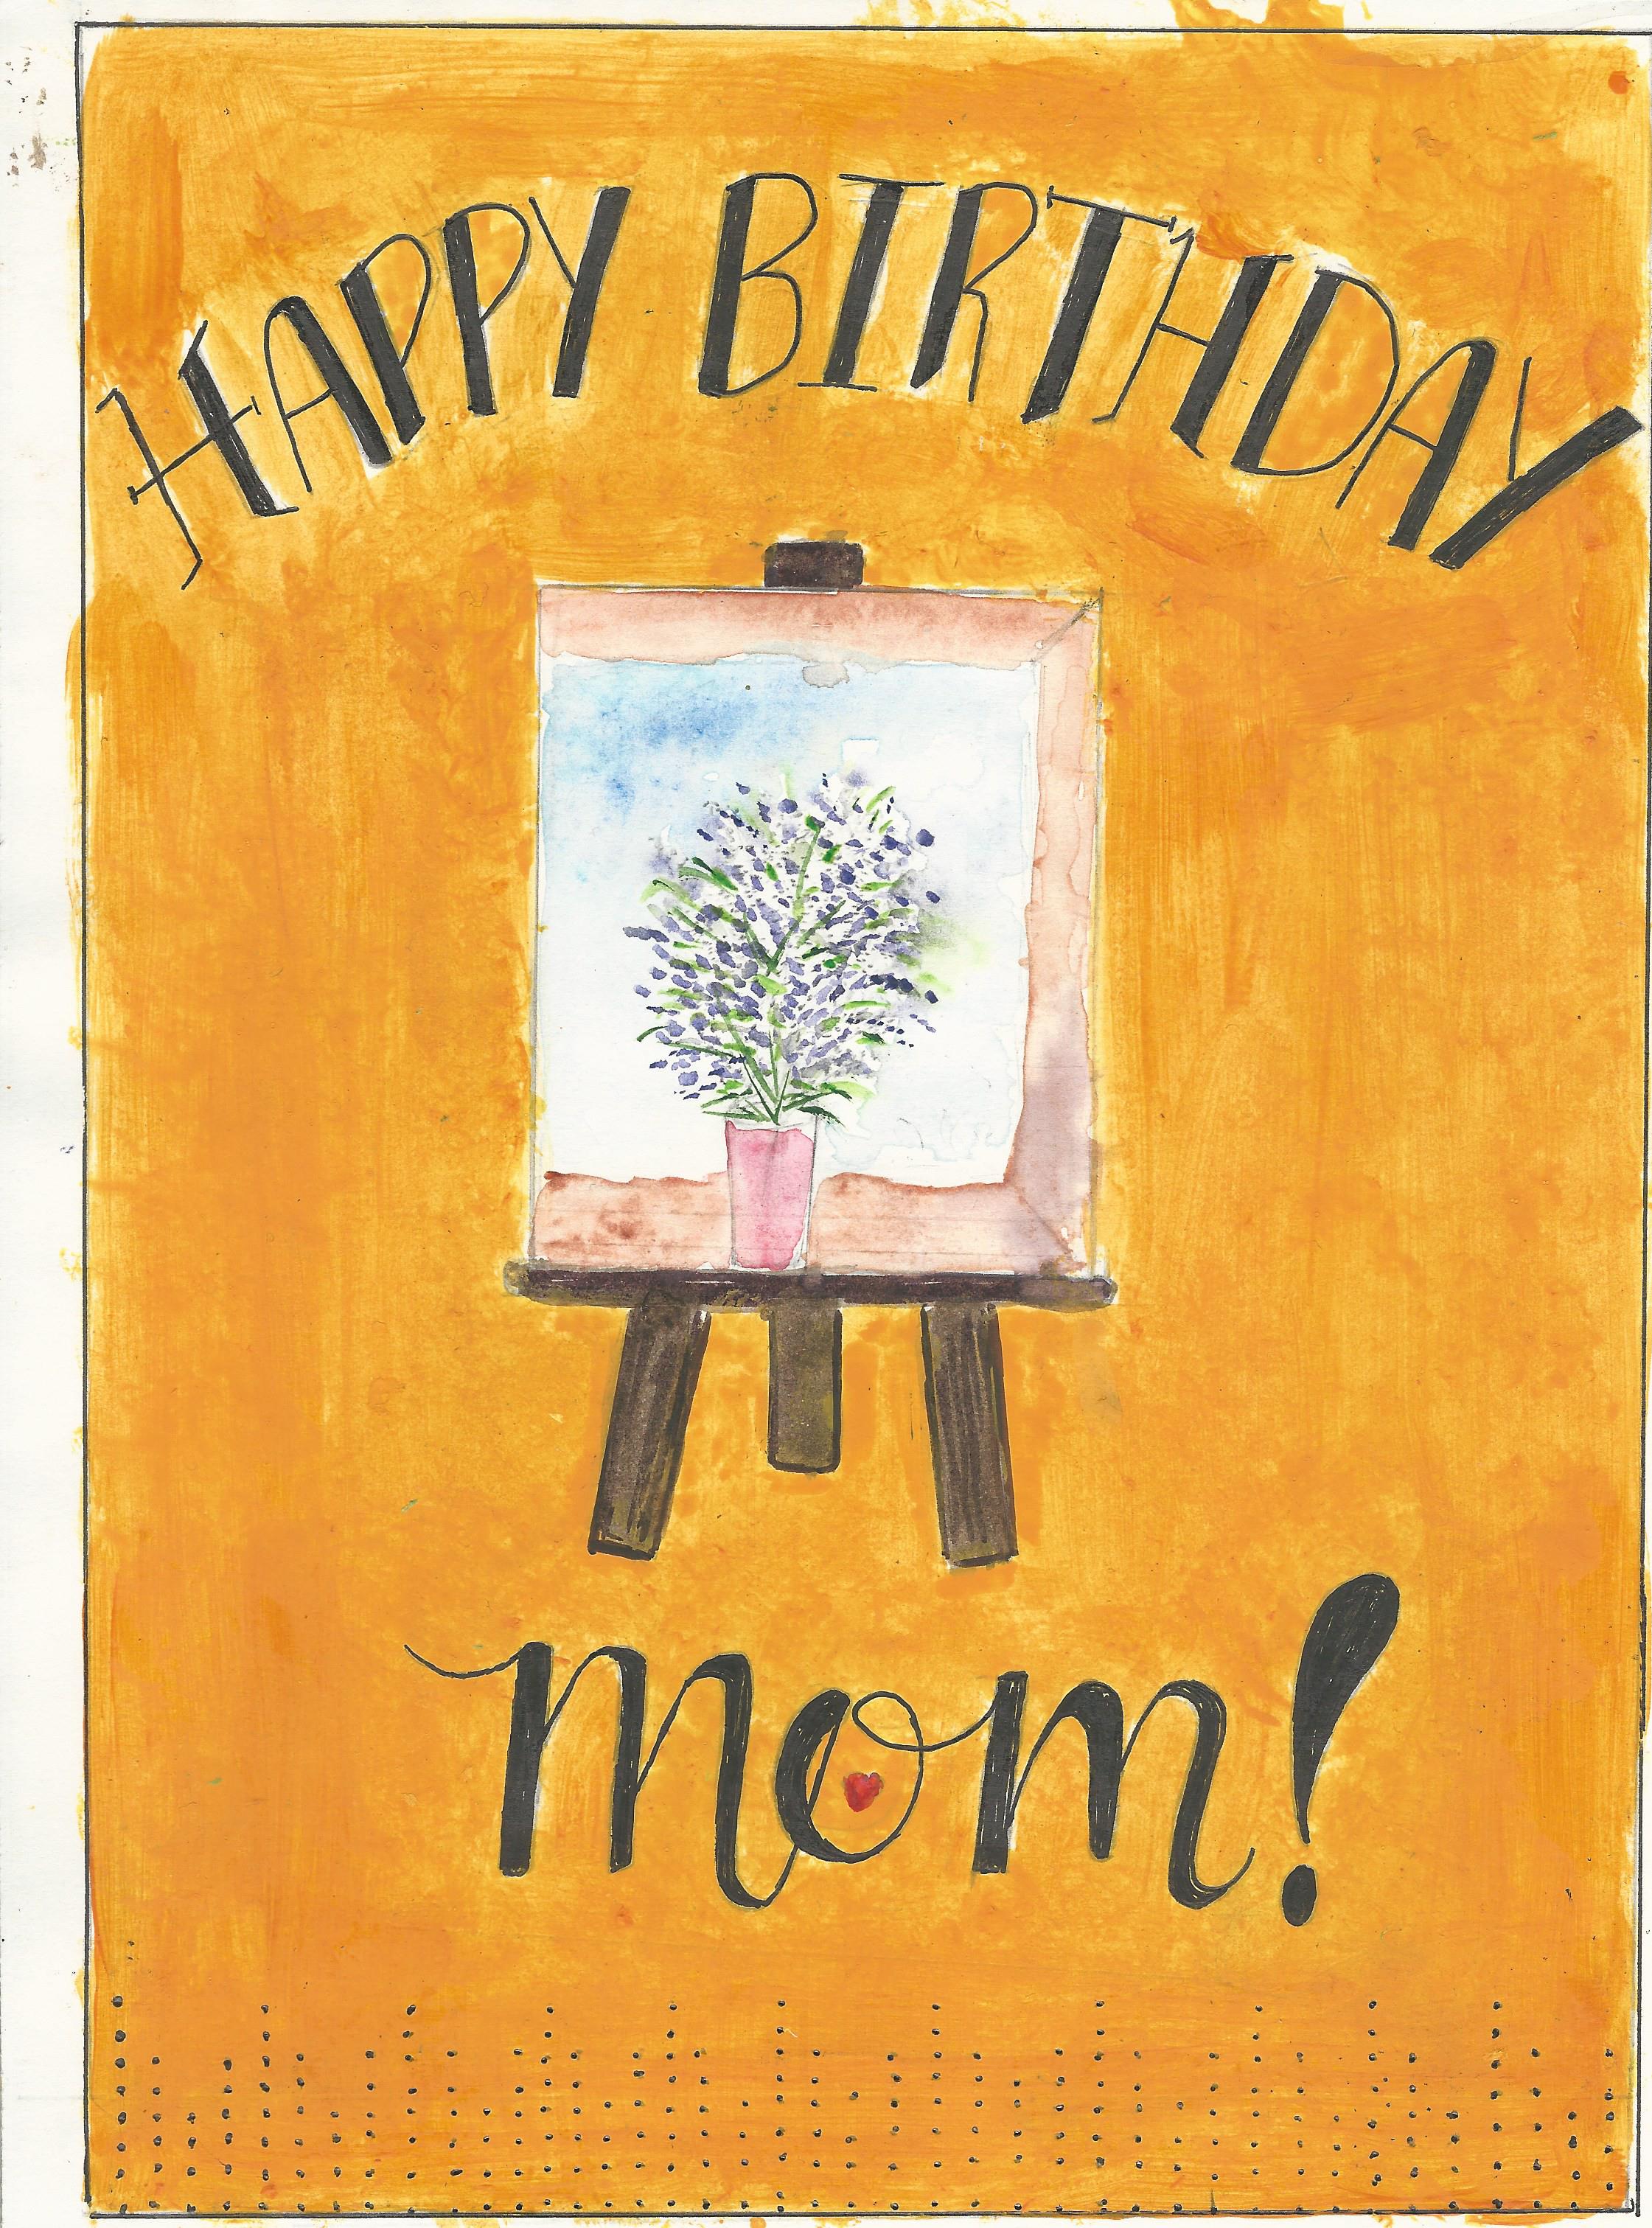 HAPPY BIRTHDAY
mom!